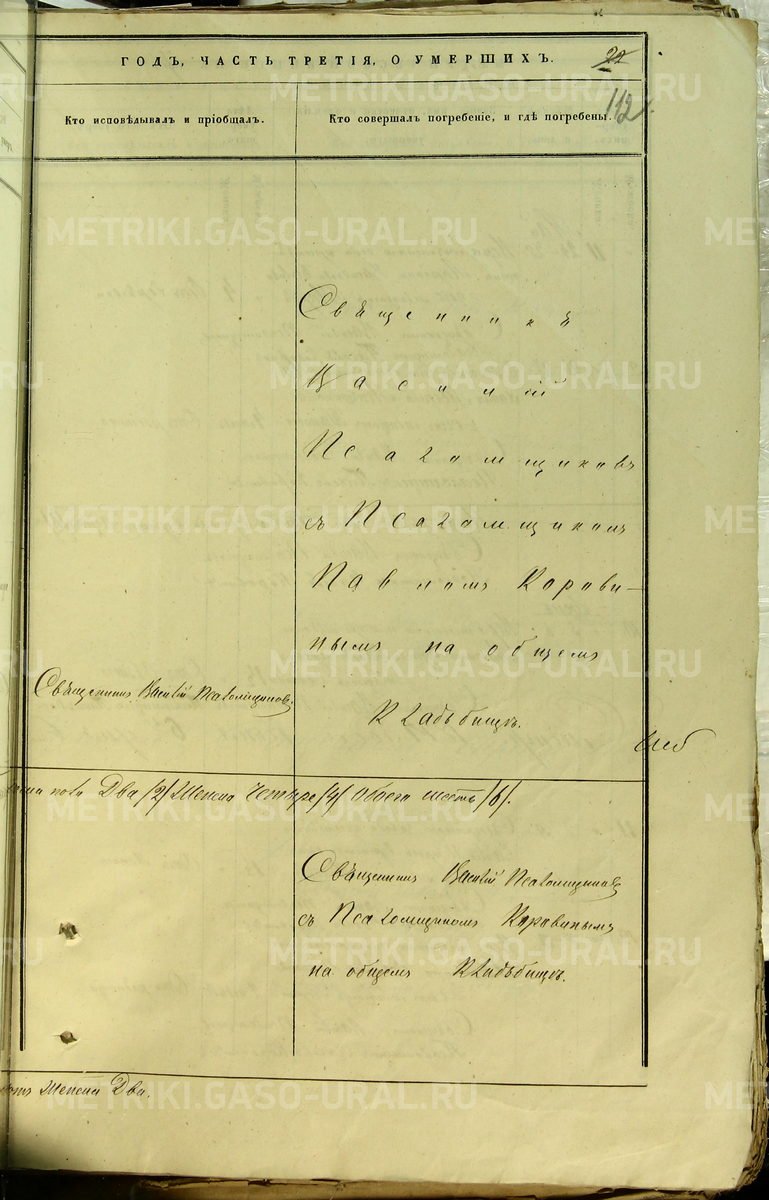 ГОДЪ, ЧАСТЬ ТРЕТІЯ, О УМЕРШИХЪ.
22
112
Кто исповѣдывалъ и пріобщалъ.
Кто совершалъ погребеніе, и гдѣ погребены.
METRIKI.GASO-URAL.RU
Священникъ
Василій
Псаломщиковъ
съ Псаломщикомъ
Павломъ Корови-
нымъ на общемъ
Кладьбищѣ.
Священникъ Василій Псаломщиковъ.
пола Два /2/ Женска Четыре /4/ Обоего шесть /6/.
Священникъ Василій Псаломщиковъ
съ Псаломщикомъ Коровинымъ
на общемъ Кладьбищѣ.
Женска Два.